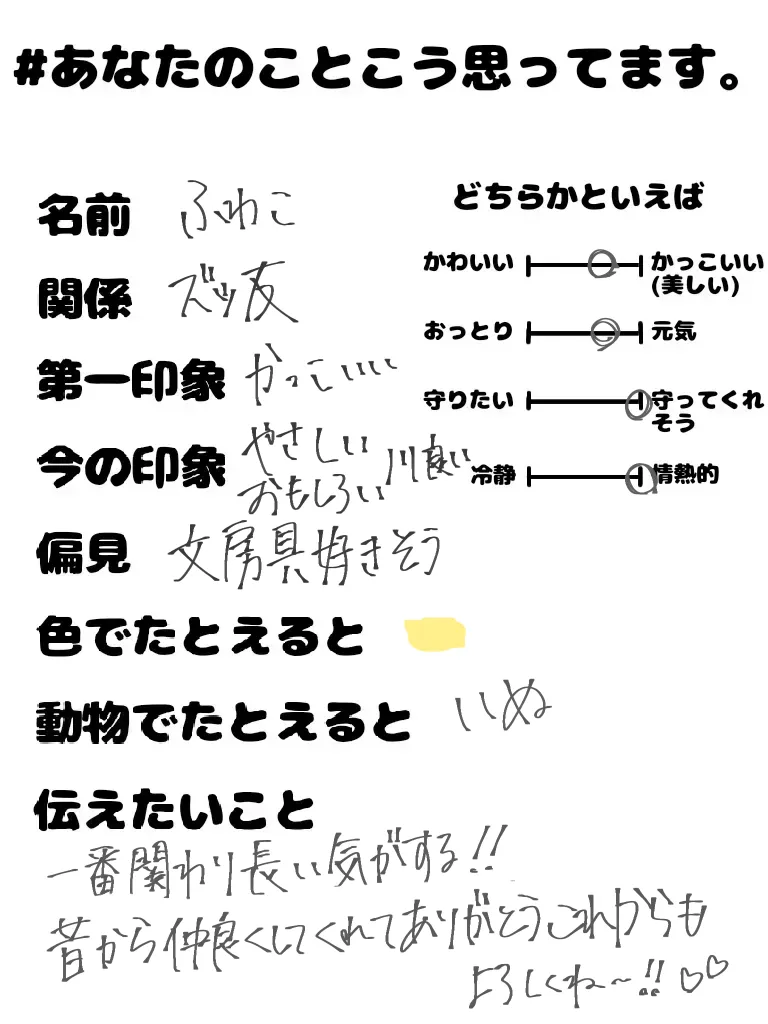 #あなたのことこう思ってます。
名前 ふわこ
関係 ズッ友
第一印象 かっこいいい
今の印象 やさしい
おもしろい
仲良い
偏見 文房具好きそう
色でたとえると
動物でたとえると いぬ
伝えたいこと
一番関わり長い気がする!!
昔から仲良くしてくれてありがとうこれからも
よろしくね〜!!♡♡
どちらかといえば
かわいい かっこいい
(美しい)
おっとり 元気
守りたい 守ってくれ
そう
冷静 情熱的